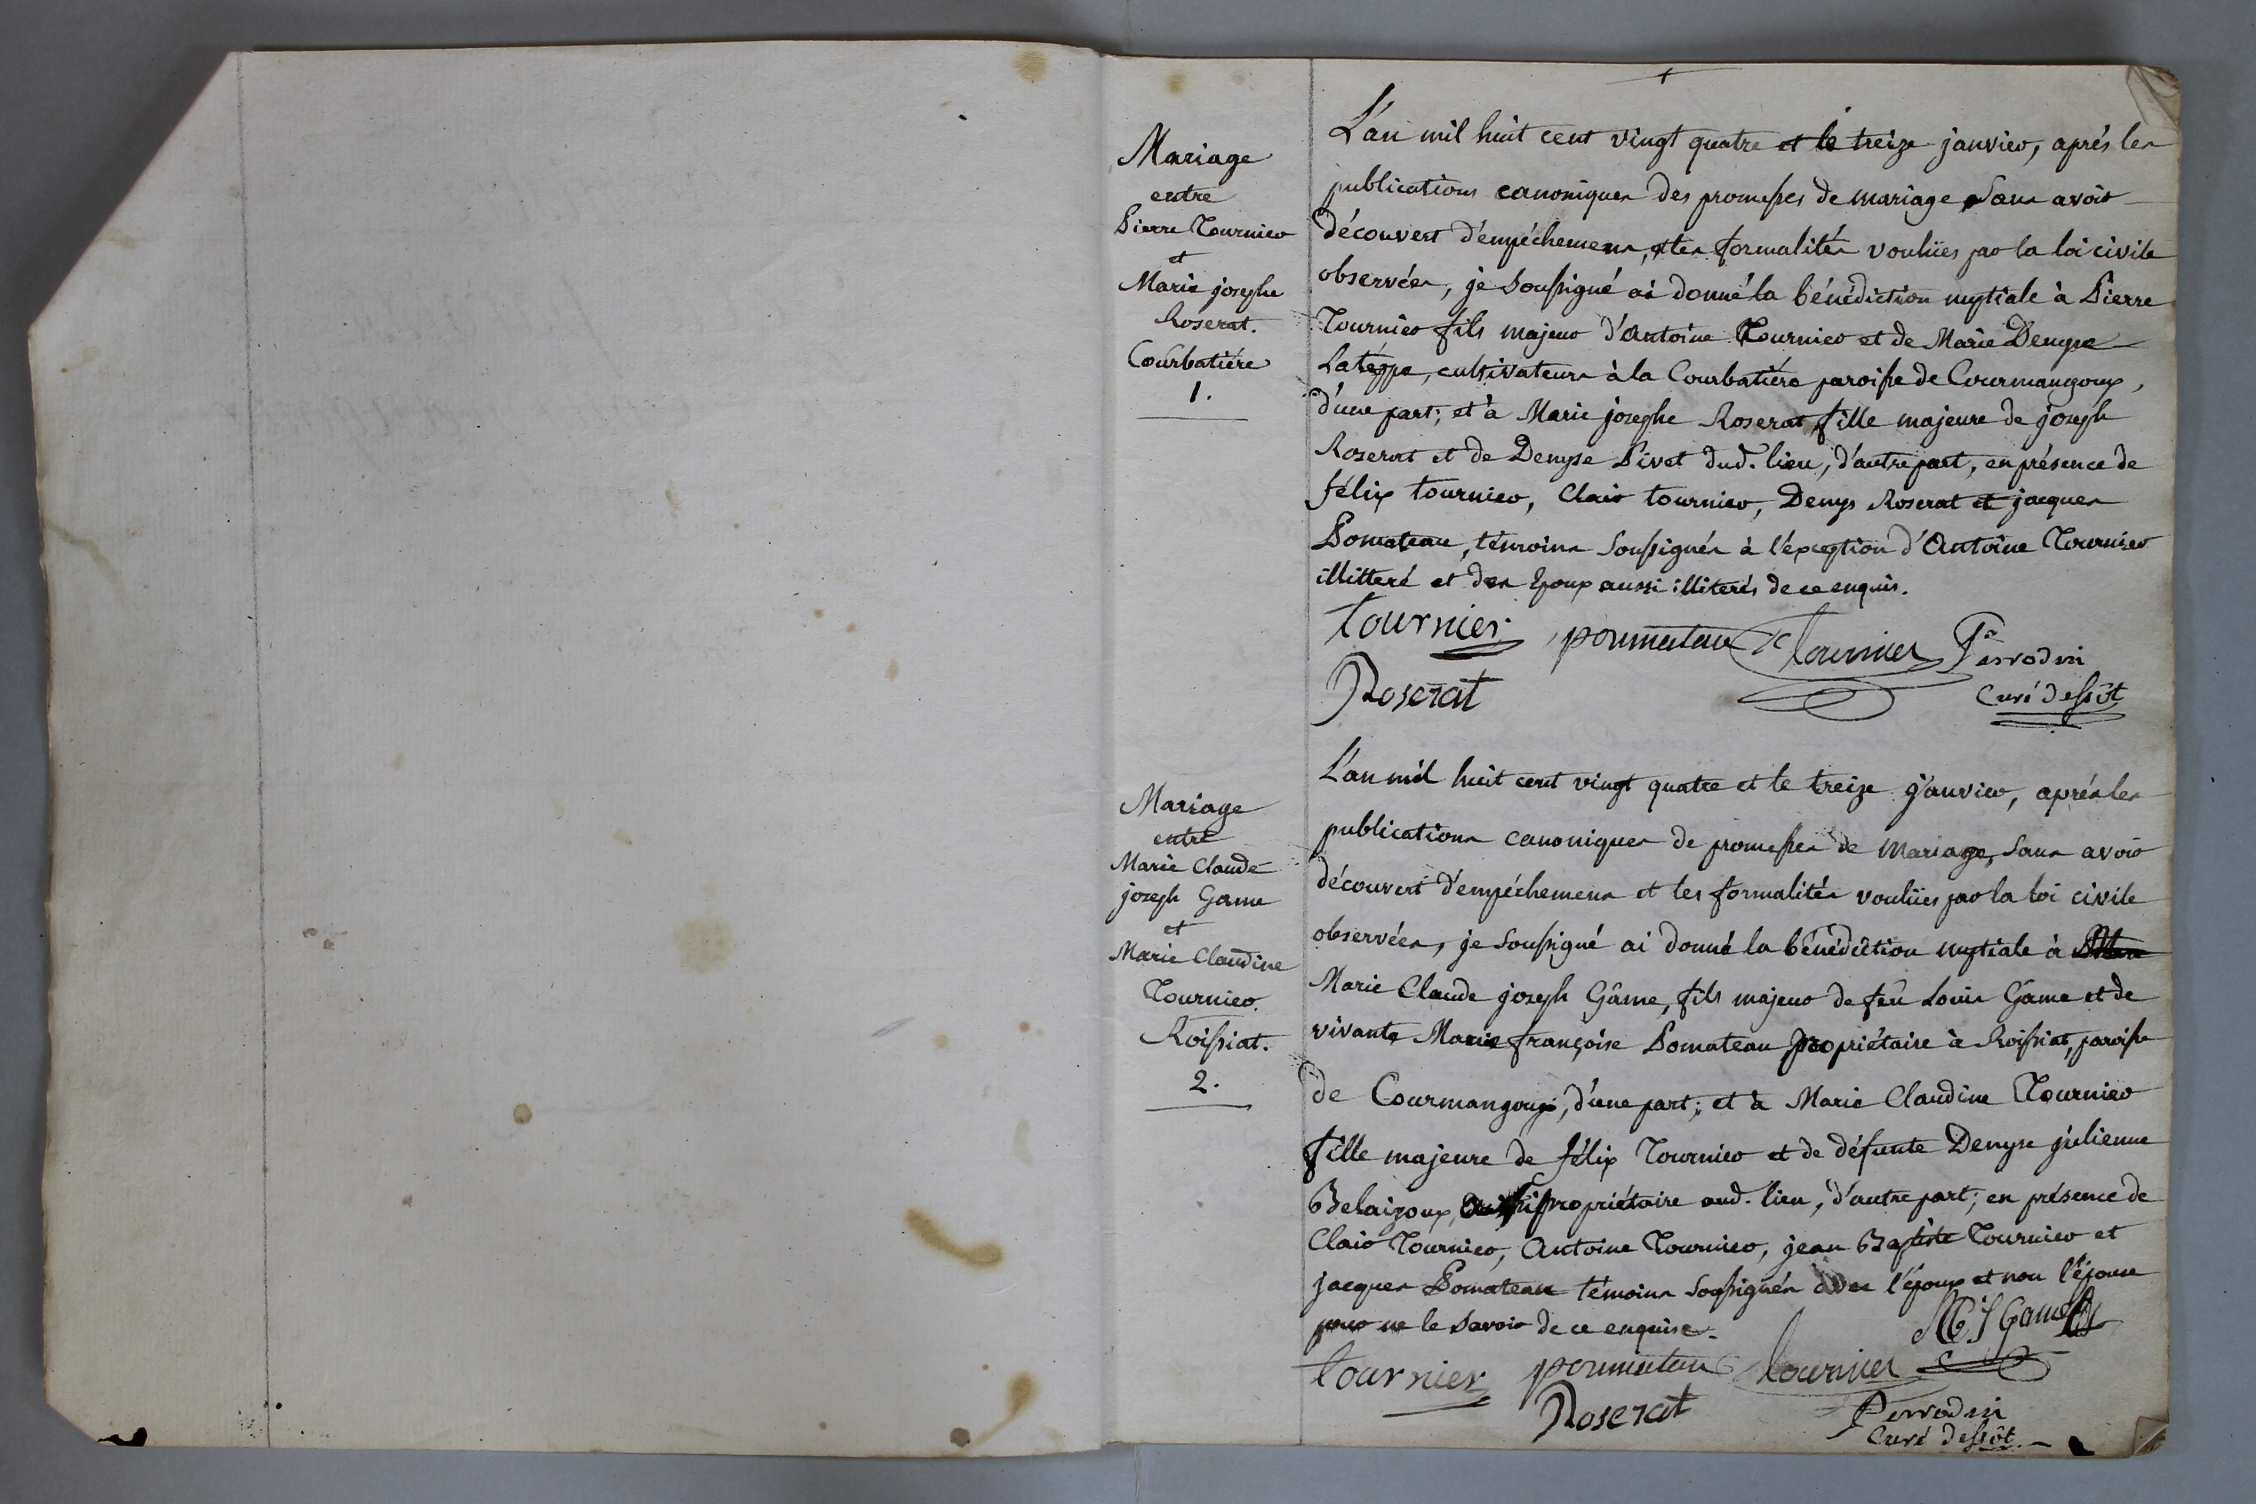 Mariage
entre
Pierre Tournier
et
Marie josephe
Roserat.
Courbatiére
1.
L'an mil huit cent vingt quatre et le treize janvier, aprés les
publications canoniques des promesses de mariage, sans avoir
découvert d'empéchemens, et les formalités vouliies par la loi civile
observées, je soussigné ai donné la bénédiction nuptiale à Pierre
Tournier fils majeur d'Antoine Tournier et de Marie Denyse
Latéppe, cultivateurs à la Courbatiére paroisse de Courmangoux,
d'une part; et à Marie josephe Roserat, fille majeure de joseph
Roserat et de Denyse Pivet dud. lieu, d'autre part, en présence de
félix tournier, Clair tournier, Denys Roserat et jacques
Pomateau, témoins soussignés à l'exception d'Antoine Tournier
illitteré et des Epoux aussi illiterés de ce enquis.
tournier poumatau Tournier Pre
Perrodin
Roserat curé dessôt
Mariage
entre
Marie Claude
joseph Game
et
Marie Claudine
Tournier
Roissiat.
2.
L'an mil huit cent vingt quatre et le treize janvier, aprés les
publications canoniques de promesses de mariage, sans avoir
découvert d'empéchemens et les formalités vouliies par la loi civile
observées, je soussigné ai donné la bénédiction nuptiale à
Marie Claude joseph Gâme, fils majeur de feu Louis Gâme et de
vivante Marie françoise Pomateau propriétaire à Roissiat, paroisse
de Courmangoux, d'une part; et à Marie Claudine Tournier
fille majeure de félix Tournier et de défunte Denyse julienne
Belaisoux, aussi propriétaire aud. lieu, d'autre part; en présence de
Clair Tournier, Antoine Tournier, jean Baptiste Tournier et
jacques Pomateau témoins soussignés avec l'époux et non l'épouse
pour ne le savoir de ce enquise.
tournier poumatau Tournier
Roserat Perrodin
curé dessôt